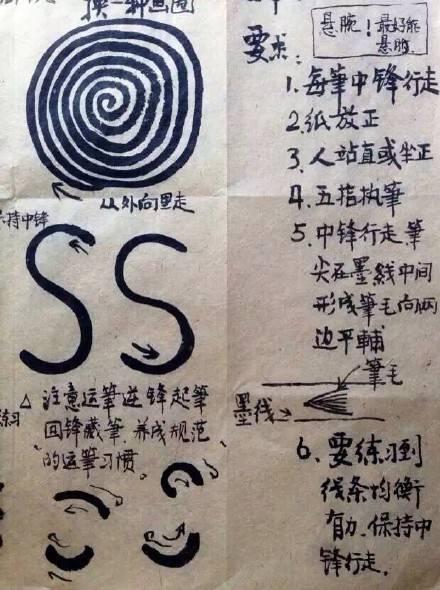 换一种画圈
从外向里走
持中锋
△ 注意运筆逆锋起筆
回锋藏筆 养成规范
的运筆习惯。
练习
悬腕！最好能
悬肘
要求：
1. 每筆中锋行走
2. 纸放正
3. 人站直或坐正
4. 五指执筆
5. 中锋行走 筆
尖在墨线中间
形成筆毛向两
边平輔
筆毛
墨线
6. 要练习到
线条均衡
有力.保持中
锋行走.